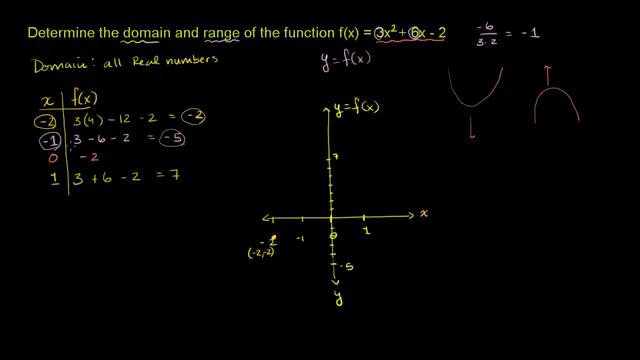 Determine the domain and range of the function f(x) = 3x² + 6x - 2
-6
3·2
= -1
y = f(x)
Domain: all Real numbers
x f(x)
-2 3(4) - 12 - 2 = -2
-1 3 - 6 - 2 = -5
0 -2
1 3 + 6 - 2 = 7
y = f(x)
7
x
-2 -1 0 1
(-2,-2)
-5
y